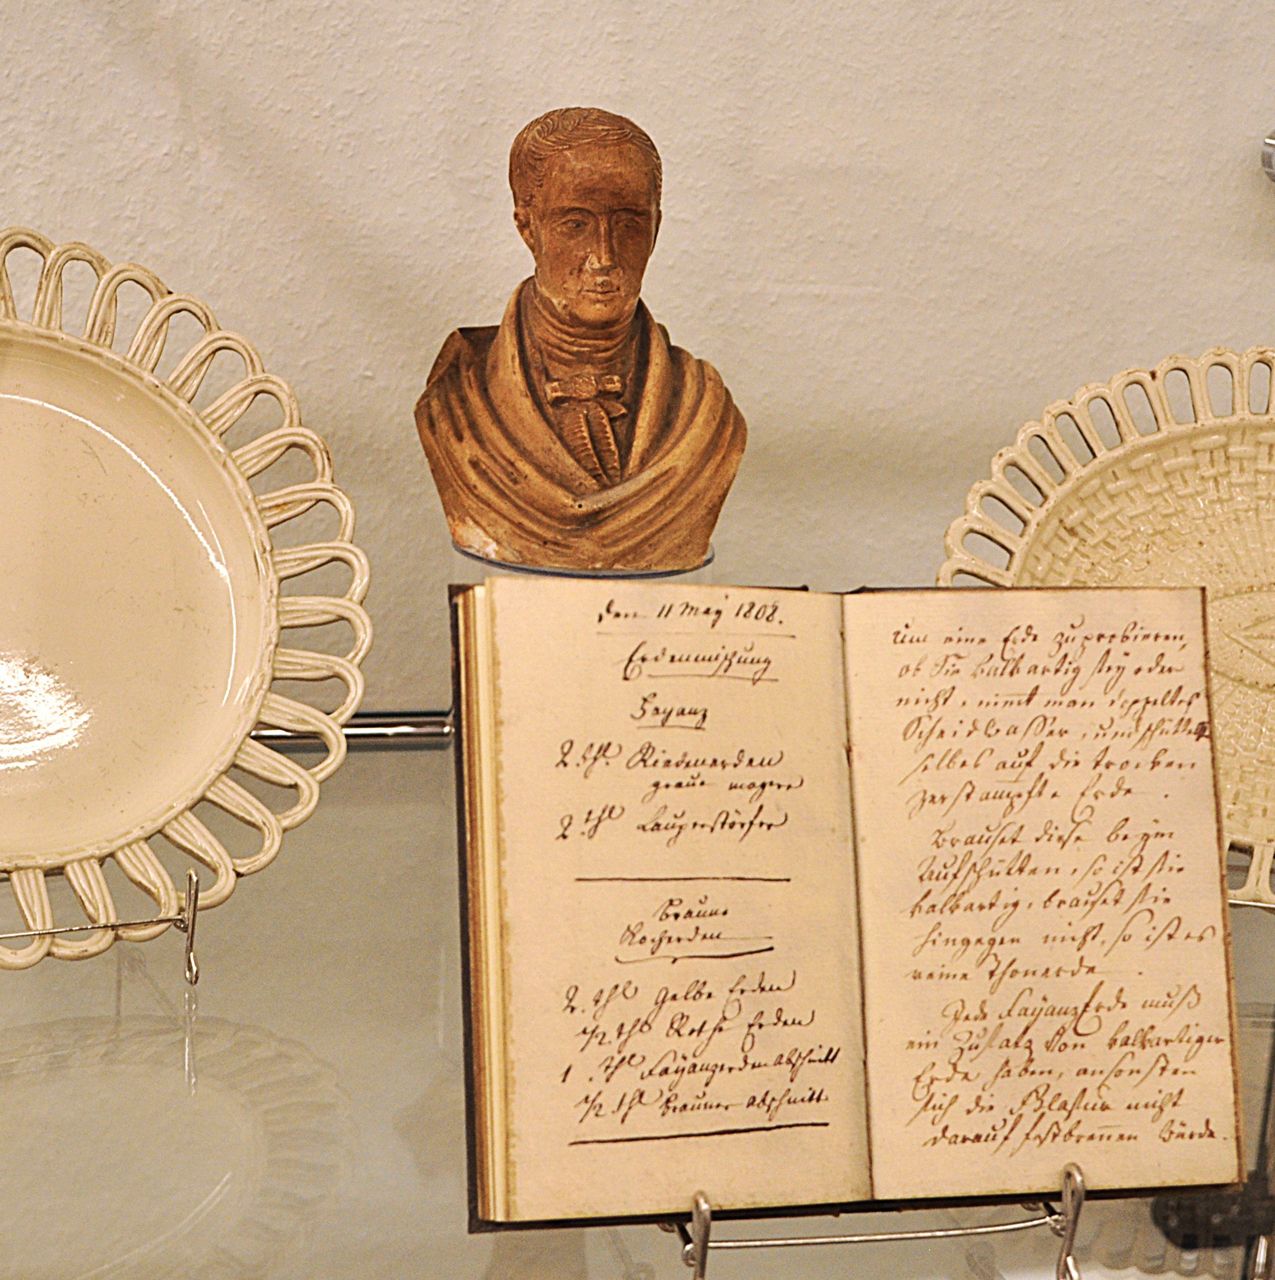 den 11 Maÿ 1808.
Erdenmischung
Faÿanz
2. thl. Riedenerden
graue magere
2. thl Laupersdörfer
Braune
Kocherden
2. thl gelbe Erden
1/2. thl Rothe Erden
1 . thl Faÿanzerden abschnitt
1/2 thl brauner abschnitt.
Um eine Erde zu probieren,
ob Sie kalkartig seÿ oder
nicht, nimt man doppeltes
Scheidwasser, und schüttet
selbes auf die trocken
zerstampfte Erde .
Brauset diese beÿm
Aufschütten, so ist sie
kalkartig, brauset sie
hingegen nicht, so ist es
reine Thonerde .
Jede FaÿanzErde muß
ein Zusatz von kalkartiger
Erde haben, ansonsten
sich die Glasur nicht
darauf festbrennen würde.